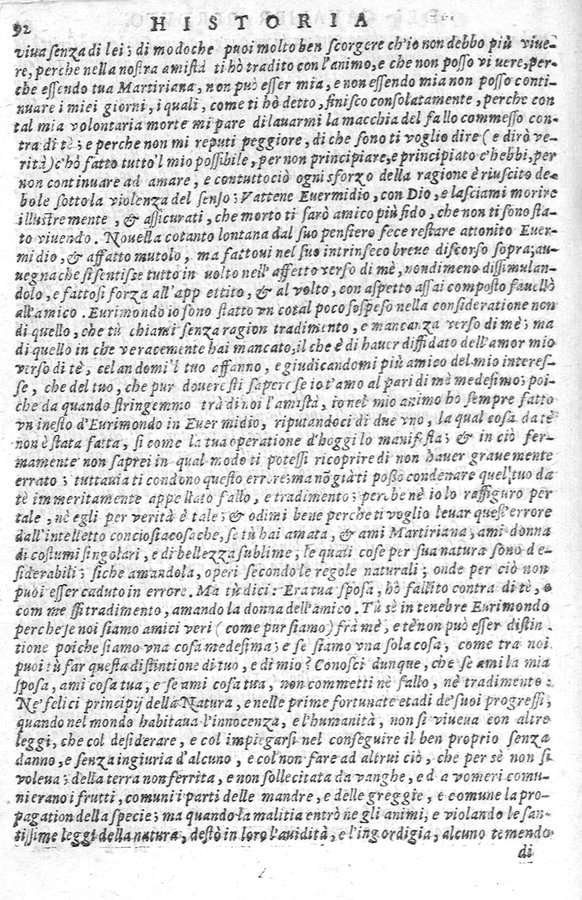 92 HISTORIA
viva senza di lei; di modoche puoi molto ben scorgere ch'io non debbo più vive-
re, perche nella nostra amistà ti hò tradito con l'animo, e che non posso vivere, per-
che essendo tua Martiriana, non può esser mia, e non essendo mia non posso conti-
nuare i miei giorni, i quali, come ti hò detto, finisco consolatamente, perche con
tal mia volontaria morte mi pare di lauarmi la macchia del fallo commesso con-
tra di tè; e perche non mi reputi peggiore, di che sono ti voglio dire (e dirò ve-
rità) c'hò fatto tutto'l mio possibile, per non principiare, e principiato c'hebbi, per
non continuare ad amare, e contuttociò ogni sforzo della ragione è riuscito de-
bole sotto la violenza del senso; Vattene Euermidio, con Dio, e lasciami morire
illustremente, & assicurati, che morto ti sarò amico più fido, che non ti sono sta-
to viuendo. Nouella cotanto lontana dal suo pensiero fece restare attonito Euer-
midio, & affatto mutolo, ma fattoui nel suo intrinseco breue discorso sopra; au-
uegna che si sentisse tutto in volto nell'affetto verso di mè, nondimeno dissimulan-
dolo, e fattosi forza all'appetito, & al volto, con aspetto assai composto fauellò
all'amico. Eurimondo io sono stato vn cotal poco sospeso nella consideratione non
di quello, che tù chiami senza ragion tradimento, e mancanza verso di mè; ma
di quello in che veracemente hai mancato, il che è di hauer diffidato dell'amor mio
verso di tè, celandomi'l tuo affanno, e giudicandomi più amico del mio interes-
se, che del tuo, che pur doueresti sapere se io t'amo al pari di mè medesimo; poi-
che da quando stringemmo trà di noi l'amistà, io nel mio animo hò sempre fatto
vn inesto d'Eurimondo in Euermidio, riputandoci di due vno, la qual cosa da tè
non è stata fatta, si come la tua operatione d'hoggi lo manifesta; & in ciò fer-
mamente non saprei in qual modo ti potessi ricoprire di non hauer grauemente
errato; tuttauia ti condono questo errore; ma nõ già ti posso condenare quel tuo da
tè immeritamente appellato fallo, e tradimento; perche nè io lo raffiguro per
tale, nè egli per verità è tale; & odimi bene perche ti voglio leuar quest'errore
dall'intelletto conciosiacosache, se tù hai amata, & ami Martiriana, ami donna
di costumi singolari, e di bellezza sublime; le quali cose per sua natura sono de-
siderabili; siche amandola, operi secondo le regole naturali; onde per ciò non
puoi esser caduto in errore. Ma tù dici: Era tua sposa, hò fallito contra di tè, e
commessi tradimento, amando la donna dell'amico. Tù sè in tenebre Eurimondo
perche se noi siamo amici veri (come pur siamo) frà mè, e tè non può esser distin-
tione poiche siamo vna cosa medesima; e se siamo vna sola cosa, come tra noi
puoi tù far questa distintione di tuo, e di mio? Conosci dunque, che se ami la mia
sposa, ami cosa tua, e se ami cosa tua, non commetti nè fallo, nè tradimento:
Ne' felici principij della Natura, e nelle prime fortunate etadi de' suoi progressi,
quando nel mondo habitaua l'innocenza, e l'humanità, non si viueua con altre
leggi, che col desiderare, e col impiegarsi nel conseguire il ben proprio senza
danno, e senza ingiuria d'alcuno, e col non fare ad altrui ciò, che per sè non si
voleua; della terra non ferrita, e non sollecitata da vanghe, e da vomeri comu-
ni erano i frutti, comuni i parti delle mandre, e delle greggie, e comune la pro-
pagation della specie; ma quando la malitia entrò ne gli animi, e violando le san-
tissime leggi della natura, destò in loro l'auidità, e l'ingordigia, alcuno temendo
di